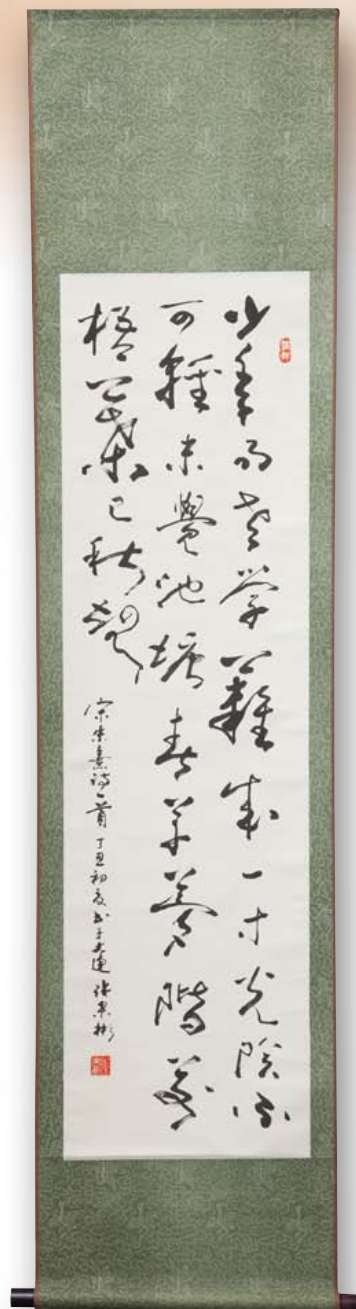 少年易老学難成一寸光陰不
可輕未覺池塘春草夢階前
梧葉已秋聲
宋朱熹詩一首 丁丑初夏書于大連 張景彬